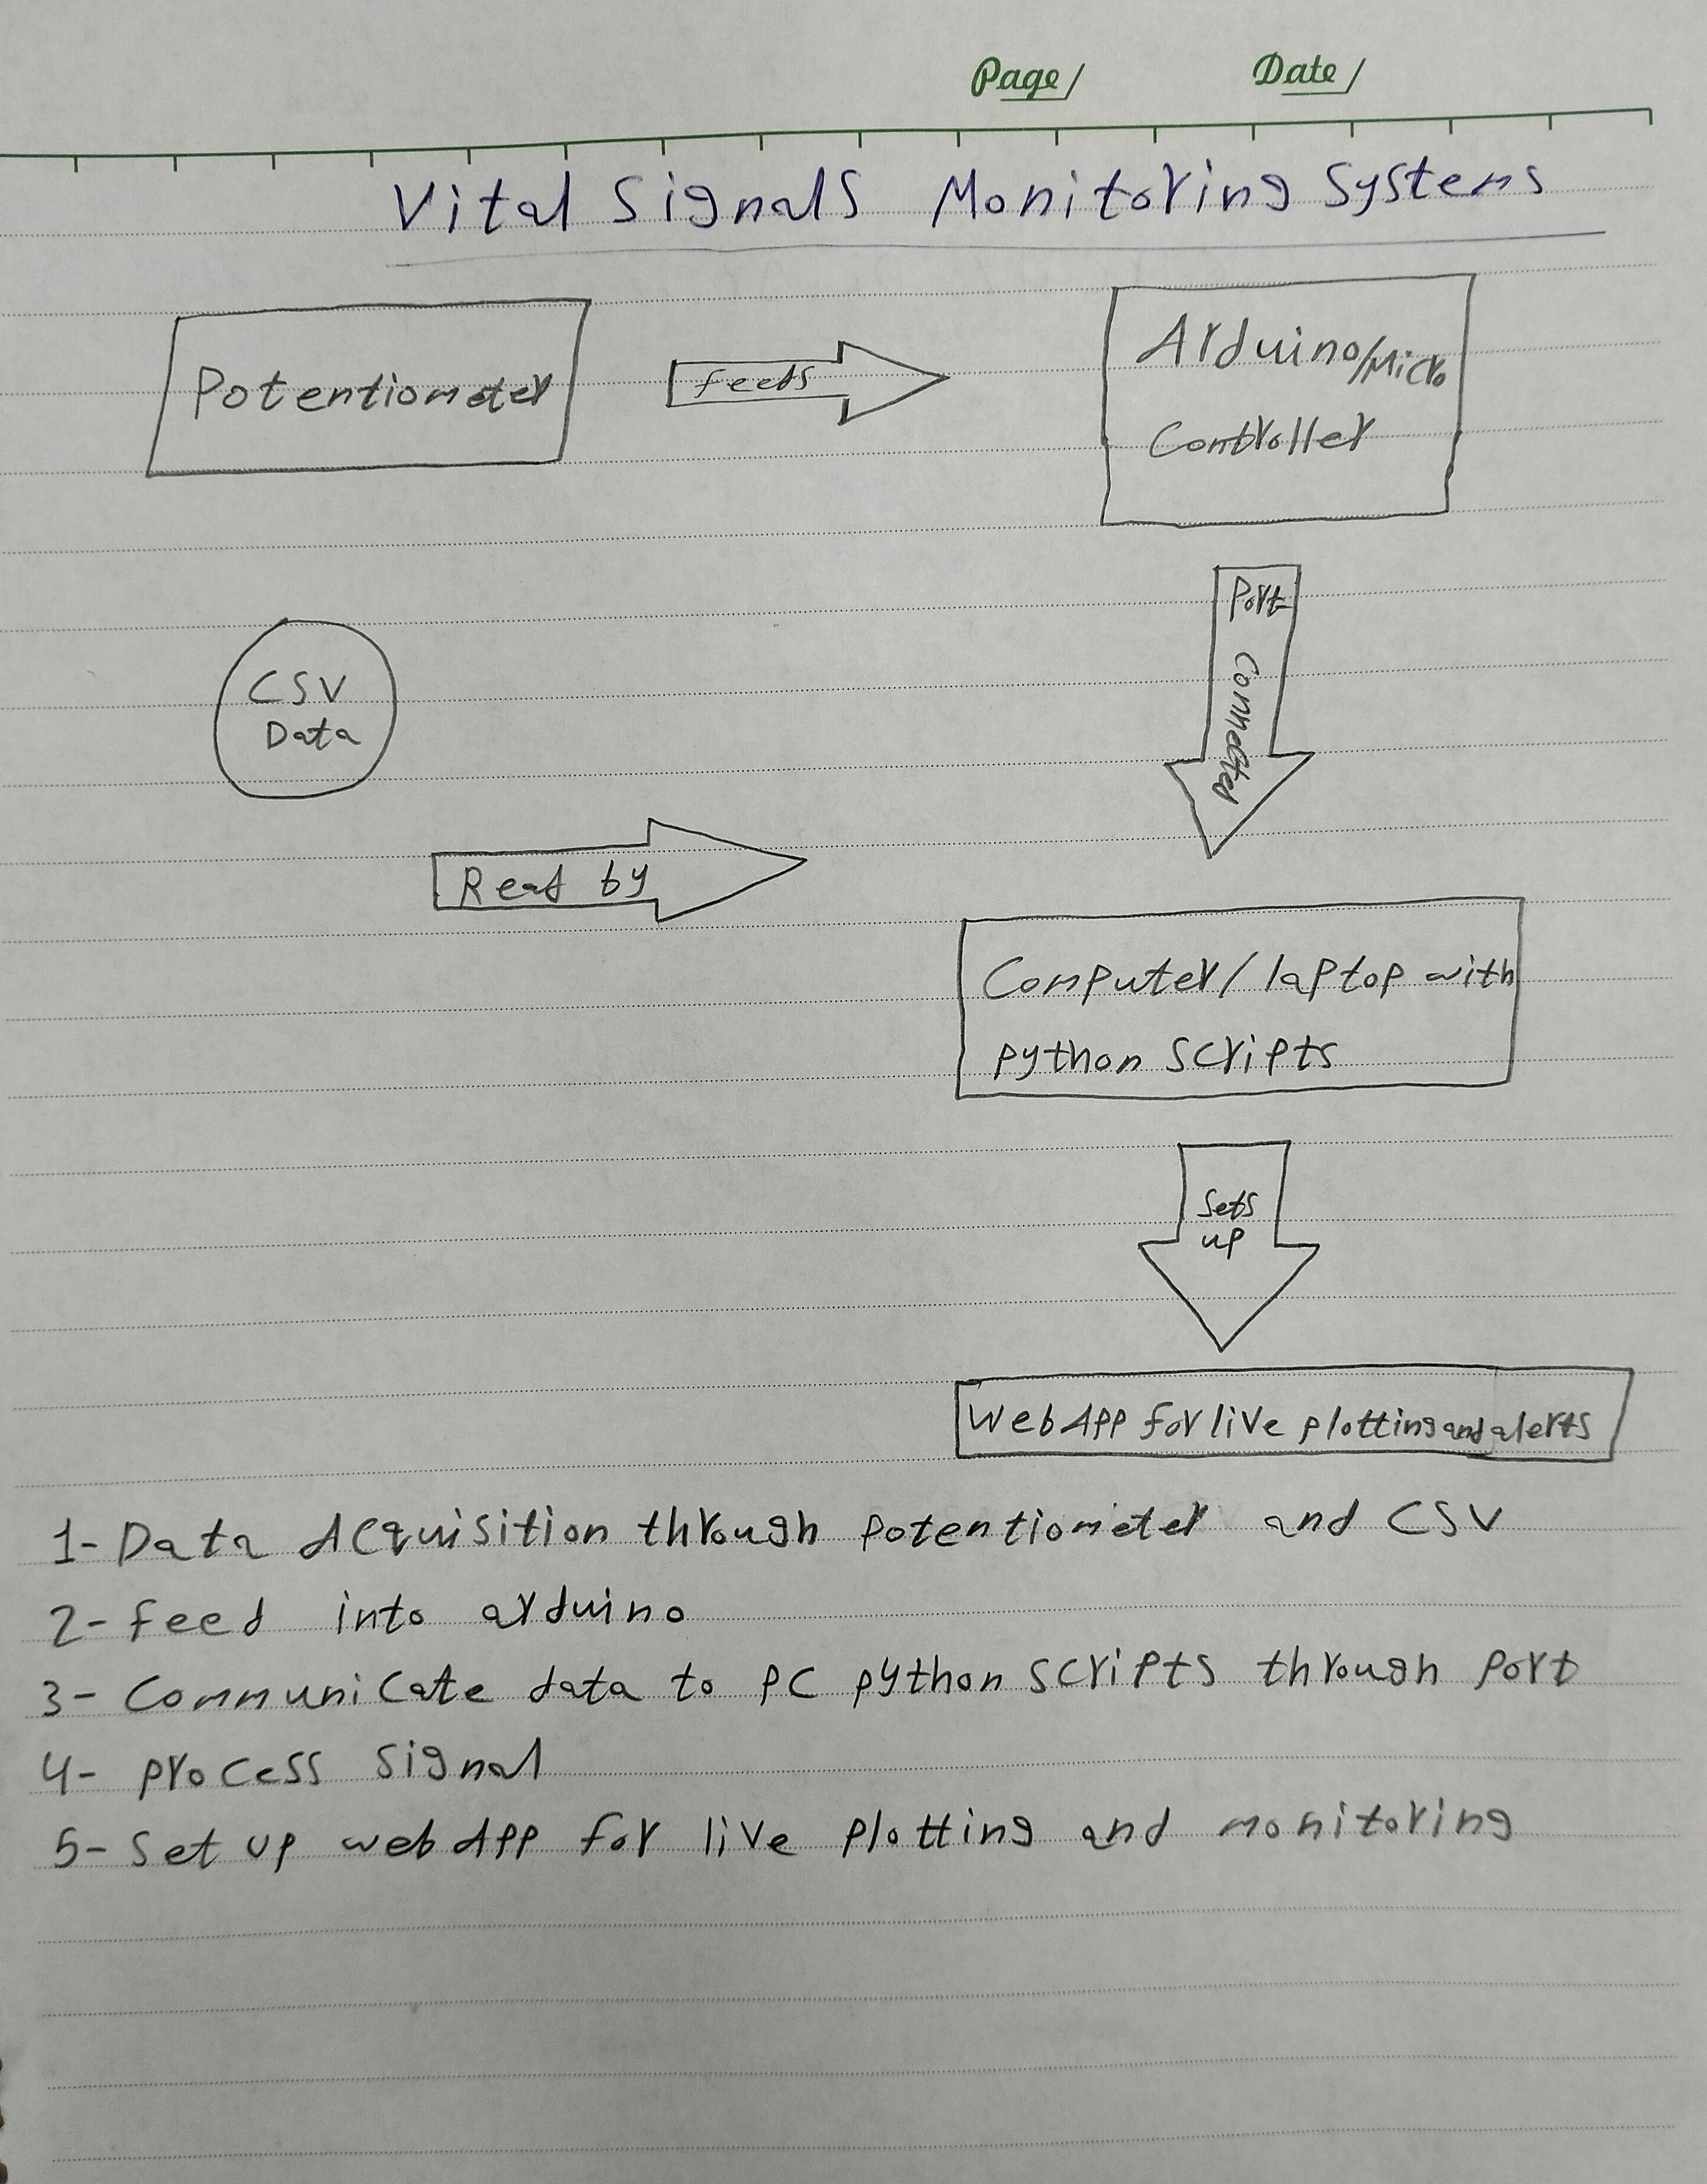 Page/ Date/
Vital Signals Monitoring Systems
Potentiometer
feeds
Arduino/Micro
Controller
Port
Connected
CSV
Data
Read by
Computer/laptop with
python scripts
Sets
up
Web App for live plotting and alerts
1- Data Acquisition through potentiometer and CSV
2- feed into arduino
3- Communicate data to PC python scripts through port
4- process signal
5- Set up web App for live plotting and monitoring